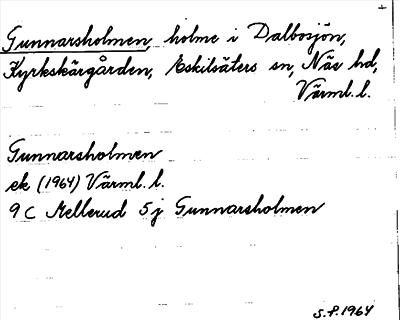 Gunnarsholmen, holme i Dalbosjön,
Kyrkskärgården, Eskilsäters sn, Näs hd,
Värml. l.
Gunnarsholmen
ek (1964) Värml. l.
9 C Mellerud 5 j Gunnarsholmen
S.F. 1964